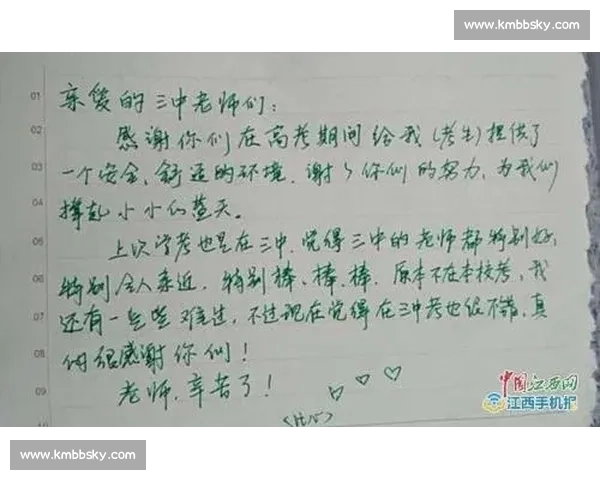 www.kmbbsky.com
01
亲爱的三中老师们:
02
感谢你们在高考期间给我(考生)提供了
03
一个安全、舒适的环境.谢々你们的努力,为我们
04
撑起小小的蓝天。
05
上次学考也是在三中,觉得三中的老师都特别好,
06
特别令人亲近,特别棒、棒、棒,原本不在本校考,我
07
还有一些些难过,不过现在觉得在三中考也很不错,真
08
的很感谢你们!
09
老师,辛苦了!
(比心)
中国江西网
江西手机报
www.kmbbsky.com
www.kmbbsky.com